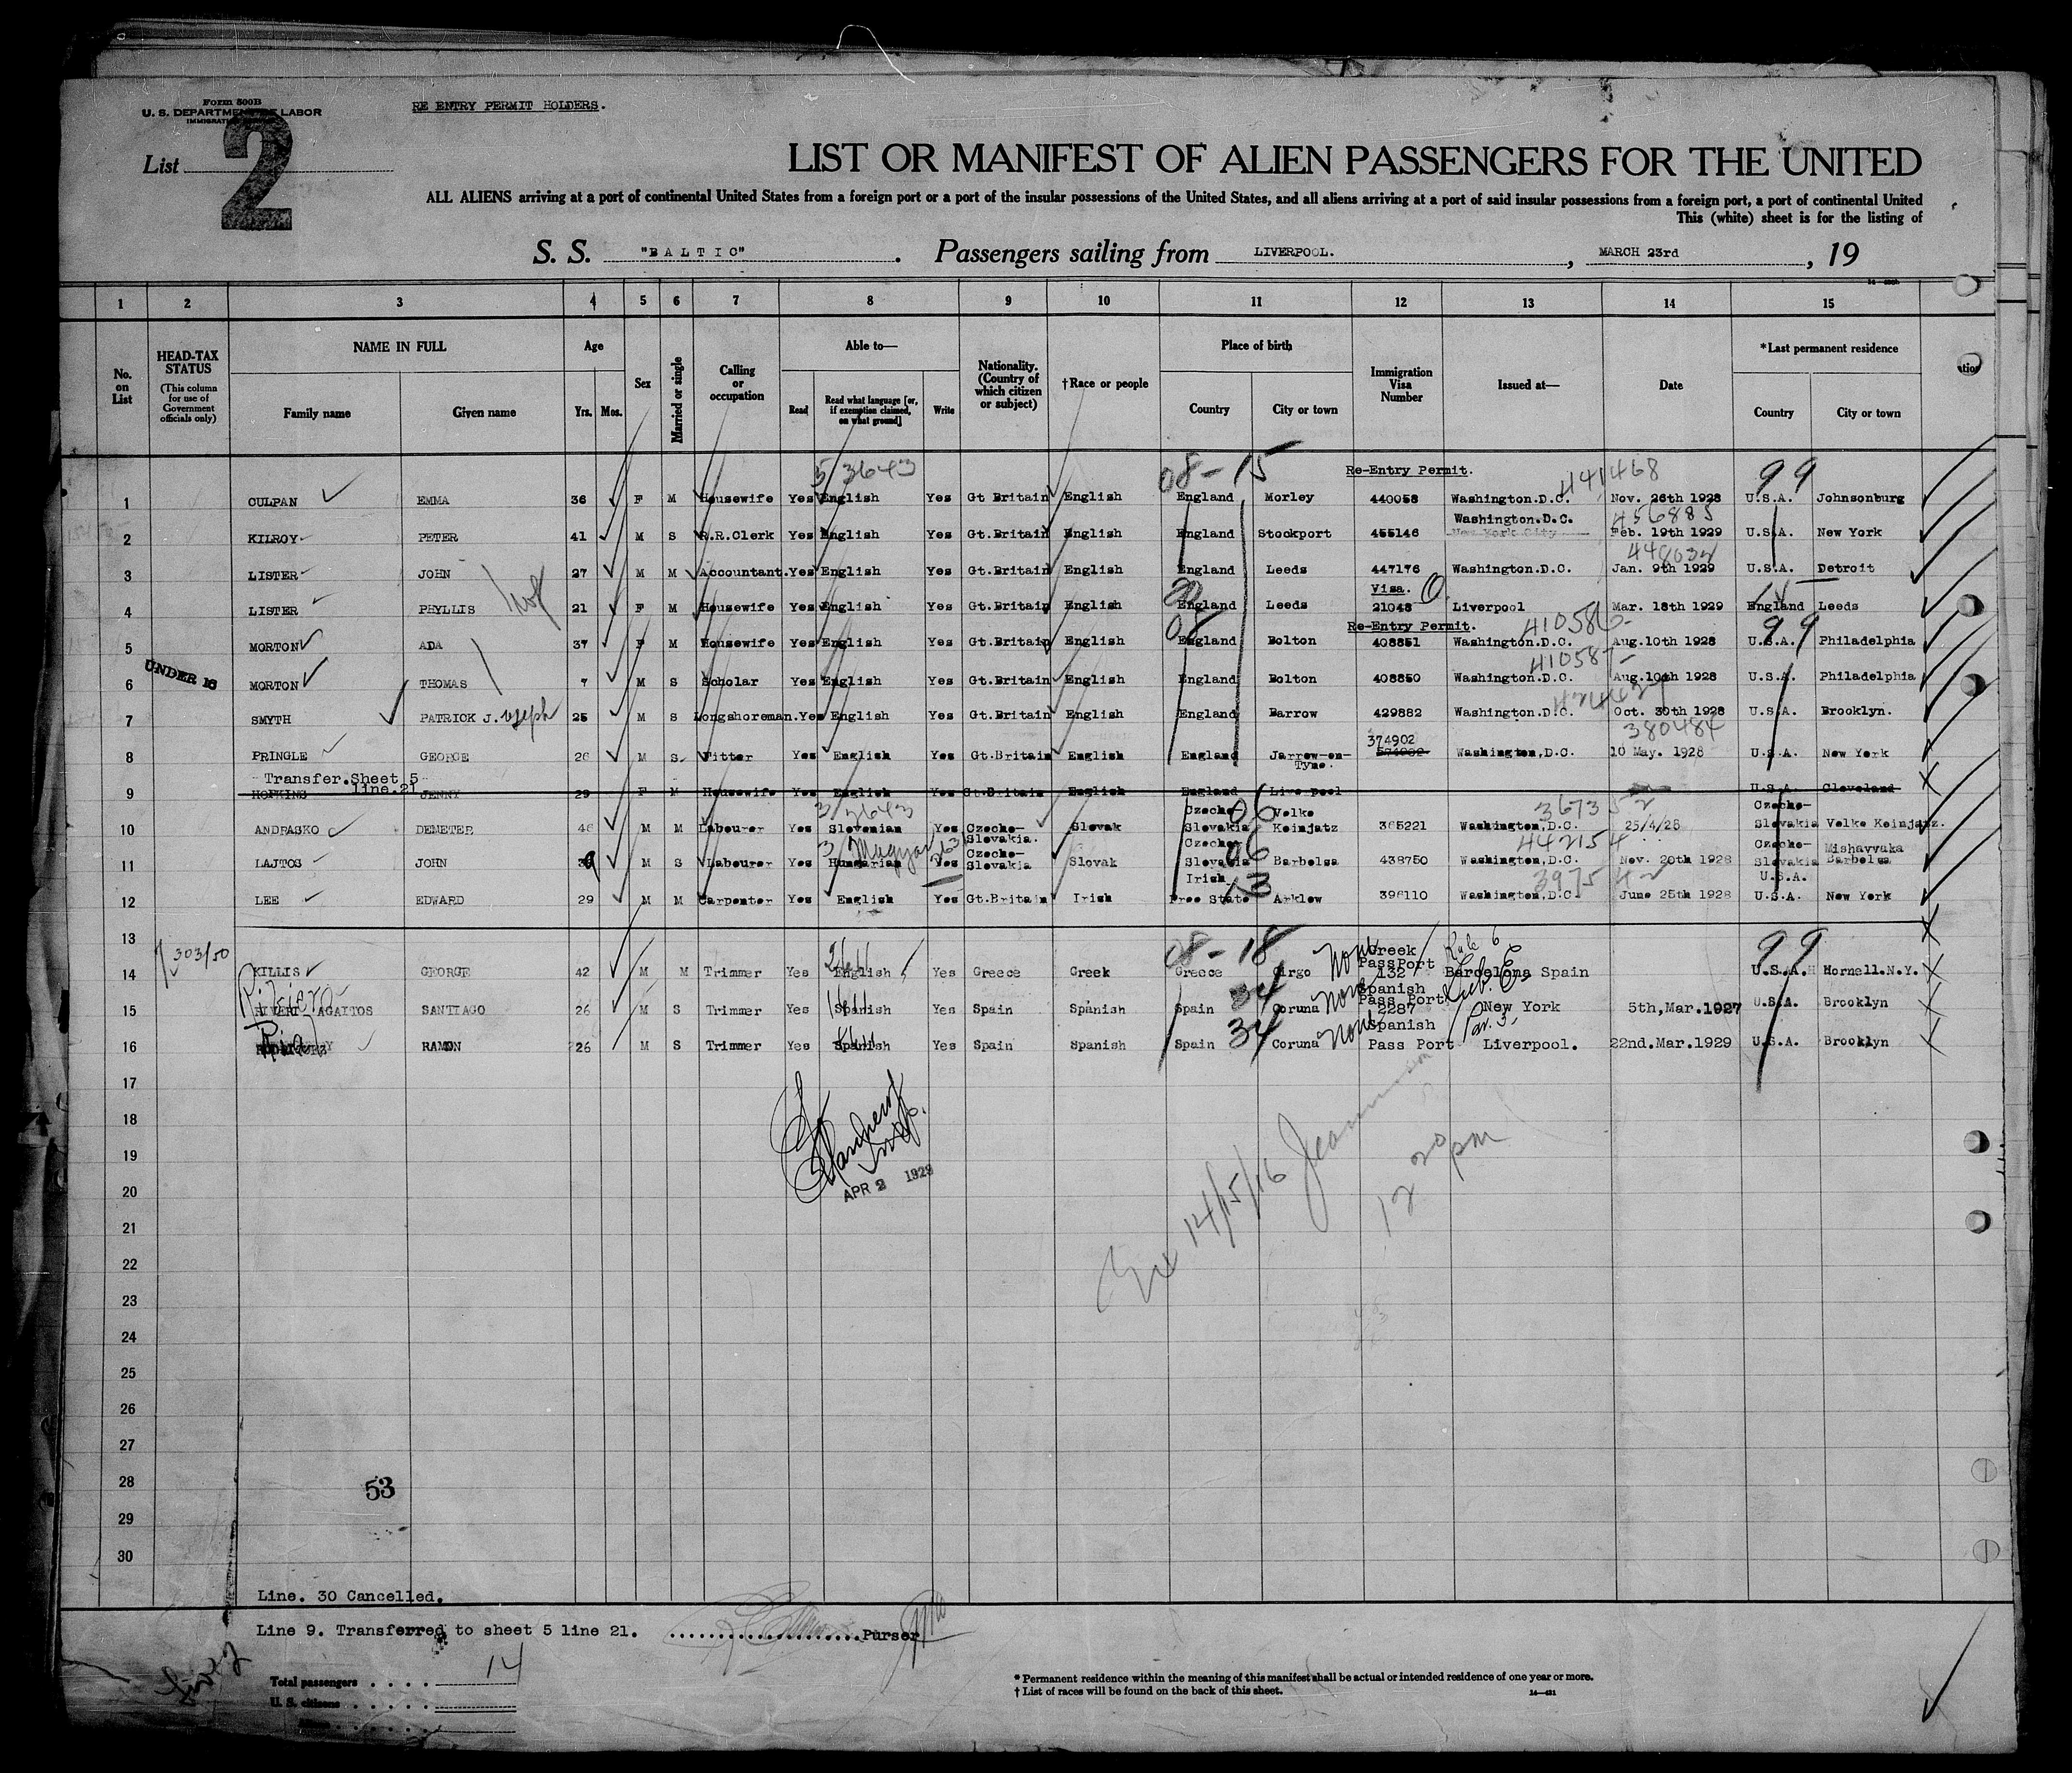 Form 500B
U. S. DEPARTMENT OF LABOR
RE ENTRY PERMIT HOLDERS.
List 2
LIST OR MANIFEST OF ALIEN PASSENGERS FOR THE UNITED
ALL ALIENS arriving at a port of continental United States from a foreign port or a port of the insular possessions of the United States, and all aliens arriving at a port of said insular possessions from a foreign port, a port of continental United
This (white) sheet is for the listing of
S. S. "BALTIC". Passengers sailing from LIVERPOOL., MARCH 23rd, 19
1 2 3 4 5 6 7 8 9 10 11 12 13 14 15
No. on List
HEAD-TAX STATUS (This column for use of Government officials only)
NAME IN FULL
Family name Given name
Age
Yrs. Mos.
Sex
Married or single
Calling or occupation
Able to—
Read Read what language [or, if exemption claimed, on what ground] Write
Nationality. (Country of which citizen or subject)
†Race or people
Place of birth
Country City or town
Immigration Visa Number
Issued at—
Date
*Last permanent residence
Country City or town
5/3643 08-15 Re-Entry Permit. 441468 99
1 CULPAN EMMA 36 F M Housewife Yes English Yes Gt Britain English England Morley 440058 Washington.D.C. Nov. 26th 1928 U.S.A. Johnsonburg
Washington.D.C. 456885
2 KILROY PETER 41 M S R.R.Clerk Yes English Yes Gt.Britain English England Stockport 455146 New York City Feb. 19th 1929 U.S.A. New York
3 LISTER JOHN 27 M M Accountant. Yes English Yes Gt.Britain English England Leeds 447176 Washington.D.C. Jan. 9th 1929 U.S.A. Detroit
Visa.
4 LISTER PHYLLIS 21 F M Housewife Yes English Yes Gt.Britain English England Leeds 21048 Liverpool Mar. 18th 1929 England Leeds
Re-Entry Permit. 99
5 MORTON ADA 37 F M Housewife Yes English Yes Gt.Britain English England Bolton 408851 Washington.D.C. Aug.10th 1928 U.S.A. Philadelphia
UNDER 16
6 MORTON THOMAS 7 M S Scholar Yes English Yes Gt.Britain English England Bolton 408850 Washington.D.C. Aug.10th 1928 U.S.A. Philadelphia
7 SMYTH PATRICK J. oseph 25 M S Longshoreman. Yes English Yes Gt.Britain English England Barrow 429882 Washington.D.C. Oct. 30th 1928 U.S.A. Brooklyn.
374902 380484
8 PRINGLE GEORGE 26 M S Fitter Yes English Yes Gt.Britain English England Jarrow-on-Tyne. 574902 Washington,D.C. 10 May. 1928 U.S.A. New York
Transfer.Sheet 5 line.21
9 HOPKINS JENNY 29 F M Housewife Yes English Yes Gt.Britain English England Liverpool U.S.A. Cleveland
3/3643 06 367352
10 ANDRASKO DEMETER 46 M M Labourer Yes Slovenian Yes Czecho-Slovakia. Slovak Czecho-Slovakia Velke Keinjatz 365221 Washington,D.C. 25/4/28 Czecho-Slovakia Velke Keinjatz.
Magyar 06 442154
11 LAJTOS JOHN 39 M S Labourer Yes Hungarian Yes Czecho-Slovakia Slovak Czecho-Slovakia Barbelsa 438750 Washington,D.C. Nov. 20th 1928 Czecho-Slovakia Barbelsa
U.S.A. Mishavvaka
13 397542
12 LEE EDWARD 29 M M Carpenter Yes English Yes Gt.Britain Irish Irish Free State Arklow 396110 Washington,D.C. June 25th 1928 U.S.A. New York
13
303/50 08-18 None Rule 6 99
14 KILLIS GEORGE 42 M M Trimmer Yes English Yes Greece Greek Greece Cirgo Greek PassPort 132 Barcelona Spain U.S.A. Hornell.N.Y.
34 None Sub. E
15 AGAITOS SANTIAGO 26 M S Trimmer Yes Spanish Yes Spain Spanish Spain Coruna Spanish Pass Port 2287 New York 5th,Mar.1927 U.S.A. Brooklyn
34 None Par. 3,
16 RAMON 26 M S Trimmer Yes Spanish Yes Spain Spanish Spain Coruna Spanish Pass Port Liverpool. 22nd.Mar.1929 U.S.A. Brooklyn
17
18
19
20
APR 2 1929
14/15/16
12 20 pm
21
22
23
24
25
26
27
28
53
29
30
Line. 30 Cancelled.
Line 9. Transferred to sheet 5 line 21. Purser
Total passengers 14
U. S. citizens
* Permanent residence within the meaning of this manifest shall be actual or intended residence of one year or more.
† List of races will be found on the back of this sheet.